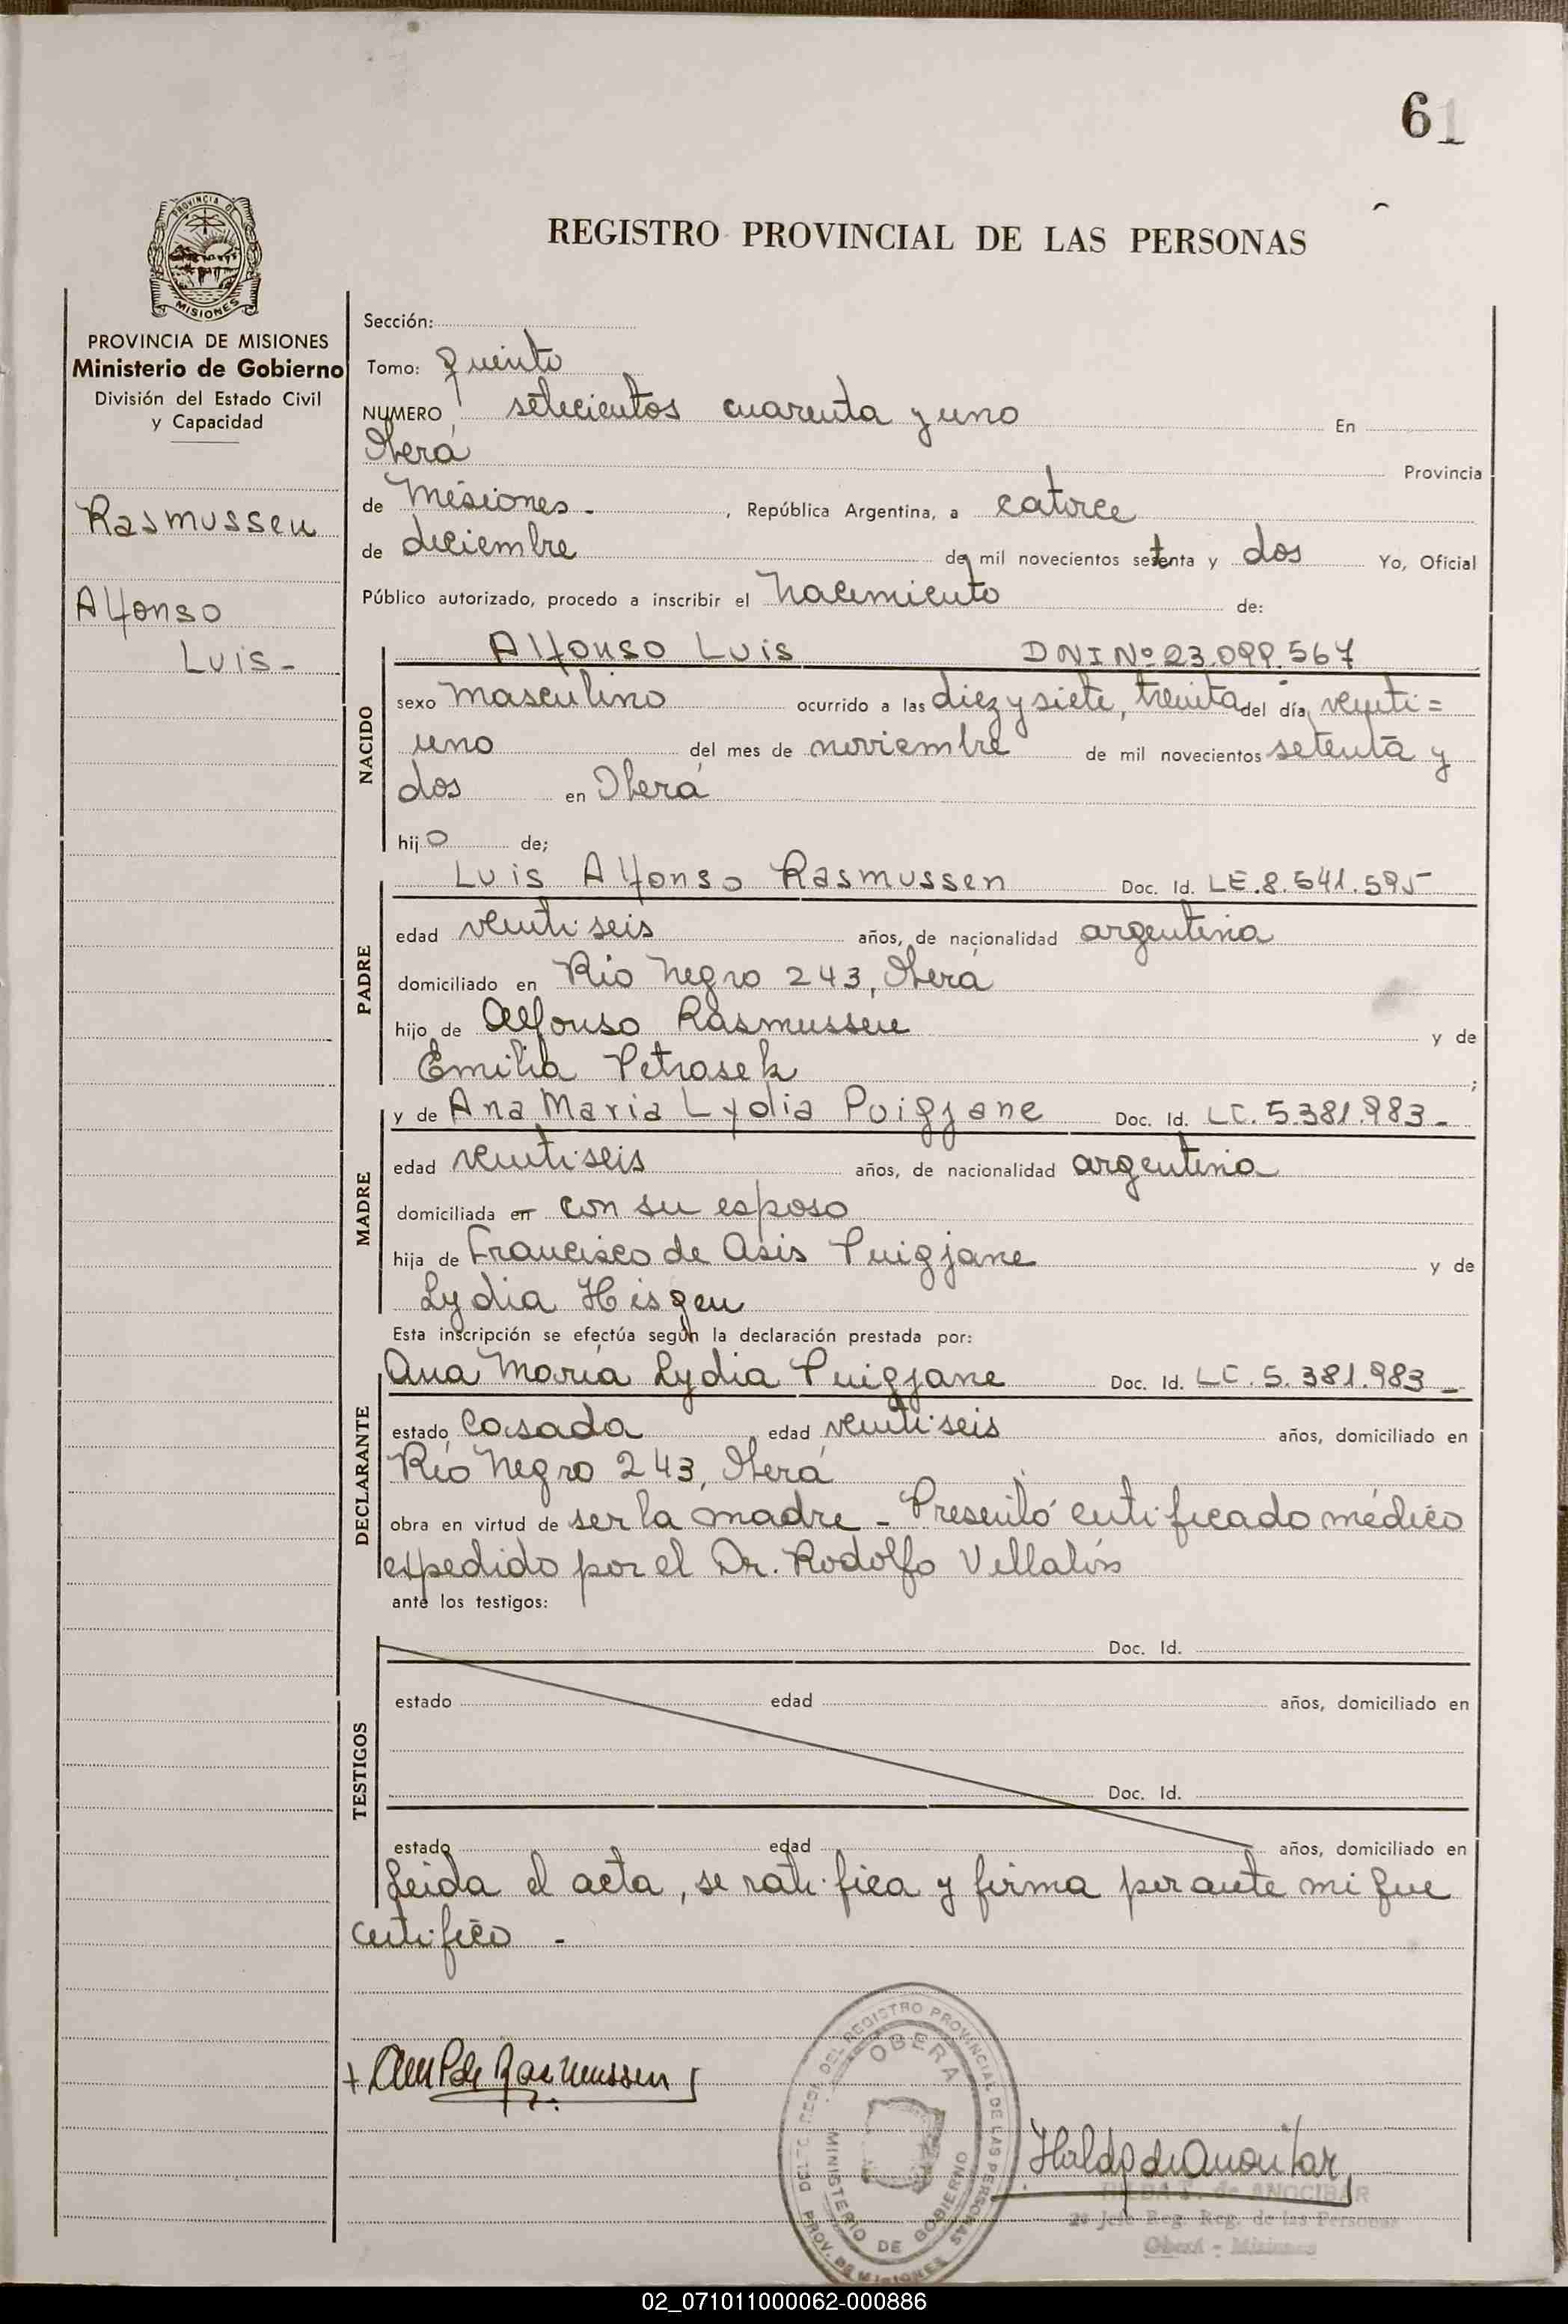 61
REGISTRO PROVINCIAL DE LAS PERSONAS
PROVINCIA DE
MISIONES
PROVINCIA DE MISIONES
Ministerio de Gobierno
División del Estado Civil
y Capacidad
Rasmussen
Alfonso
Luis-
Sección:
Tomo: quinto
NUMERO setecientos cuarenta y uno En
Oberá Provincia
de Misiones- , República Argentina, a catorce
de diciembre de mil novecientos setenta y dos Yo, Oficial
Público autorizado, procedo a inscribir el nacimiento de:
NACIDO
Alfonso Luis DNI Nº 23.099.567
sexo masculino ocurrido a las diez y siete, treinta del día, veinti=
uno del mes de noviembre de mil novecientos setenta y
dos en Oberá
hijo de;
PADRE
Luis Alfonso Rasmussen Doc. Id. LE.8.541.595
edad veinti seis años, de nacionalidad argentina
domiciliado en Río Negro 243, Oberá
hijo de Alfonso Rasmussen y de
Emilia Petrasek ;
MADRE
y de Ana Maria Lydia Puigjane Doc. Id. LC. 5.381.983-
edad veinti seis años, de nacionalidad argentina
domiciliada en con su esposo
hija de Francisco de Asis Puigjane y de
Lydia Hisgen
Esta inscripción se efectúa según la declaración prestada por:
DECLARANTE
Ana María Lydia Puigjane Doc. Id. LC. 5.381.983-
estado casada edad veinti seis años, domiciliado en
Río Negro 243, Oberá
obra en virtud de ser la madre - Presentó certificado médico
expedido por el Dr. Rodolfo Villalón
ante los testigos:
TESTIGOS
Doc. Id.
estado edad años, domiciliado en
Doc. Id.
estado edad años, domiciliado en
Leida el acta, se ratifica y firma por ante mi que
certifico -
Rasmussen
DEL REGISTRO PROVINCIAL DE LAS PERSONAS
OBERA
MINISTERIO DE GOBIERNO
PROV. DE MISIONES
HILDA T. de ANOCIBAR
2º Jefe Reg. Reg. de las Personas
Oberá - Misiones
02_071011000062-000886